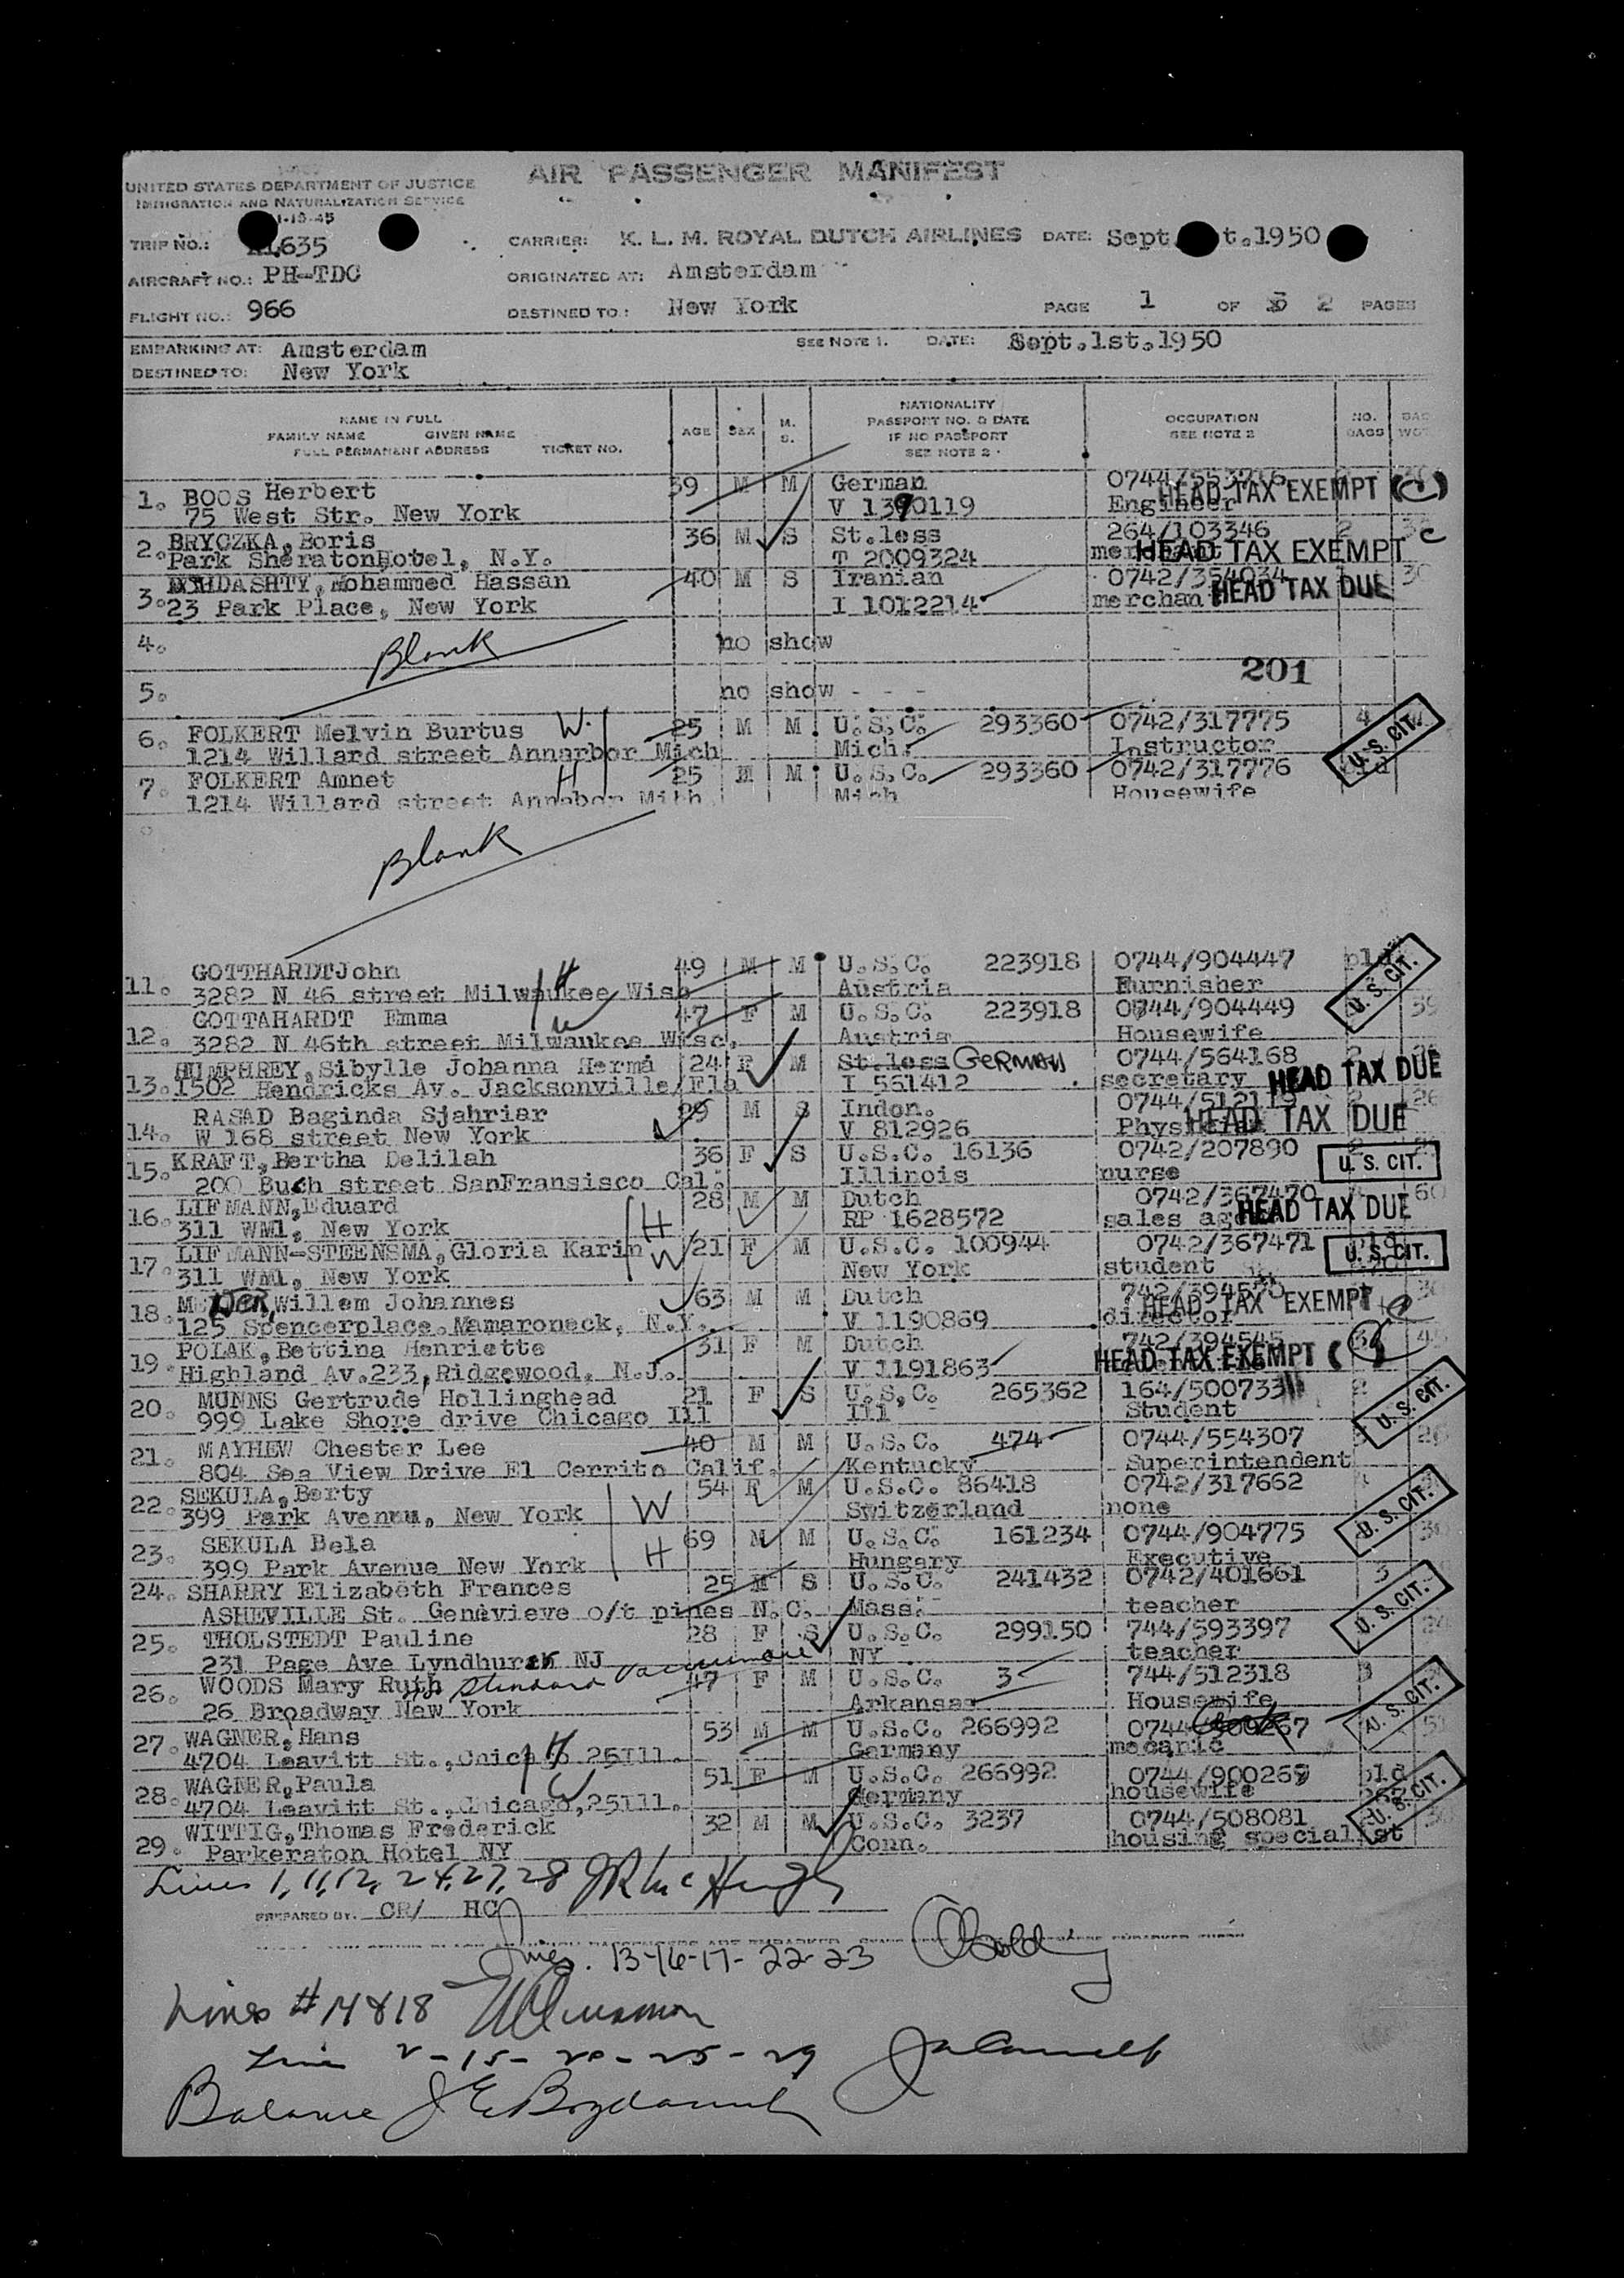 AIR PASSENGER MANIFEST
UNITED STATES DEPARTMENT OF JUSTICE
IMMIGRATION AND NATURALIZATION SERVICE
1-10-45
TRIP NO.: KL635 CARRIER: K. L. M. ROYAL DUTCH AIRLINES DATE: Sept. t.1950
AIRCRAFT NO.: PH-TDC ORIGINATED AT: Amsterdam
FLIGHT NO.: 966 DESTINED TO: New York PAGE 1 OF 3 2 PAGES
EMBARKING AT: Amsterdam SEE NOTE 1. DATE: Sept.1st.1950
DESTINED TO: New York
NAME IN FULL
FAMILY NAME GIVEN NAME
FULL PERMANENT ADDRESS TICKET NO.
AGE SEX M. S.
NATIONALITY
PASSPORT NO. & DATE
IF NO PASSPORT
SEE NOTE 2
OCCUPATION
SEE NOTE 2
NO. BAGS
BAG WGT
1. BOOS Herbert 39 M M German 0744/553716
75 West Str. New York V 1390119 Engineer HEAD TAX EXEMPT
2. BRYCZKA, Boris 36 M S St.less 264/103346 2
Park SheratonHotel, N.Y. T 2009324 HEAD TAX EXEMPT C
3. DASHTY, Mohammed Hassan 40 M S Iranian 0742/354034 30
23 Park Place, New York I 1012214 merchan HEAD TAX DUE
4. Blank no show
201
5. no show - - -
6. FOLKERT Melvin Burtus W. 25 M M U.S.C. 293360 0742/317775 4
1214 Willard street Annarbor Mich Mich. Instructor U.S. CIT.
7. FOLKERT Amnet H 25 M M U.S.C. 293360 0742/317776
1214 Willard street Annabor Mich. Mich Housewife
Blank
11. GOTTHARDTJohn H 49 M M U.S.C. 223918 0744/904447 pld
3282 N 46 street Milwaukee Wisc Austria Furnisher U.S. CIT.
12. GOTTAHARDT Emma W 47 F M U.S.C. 223918 0744/904449 59
3282 N 46th street Milwaukee Wisc. Austria Housewife
13. HUMPHREY, Sibylle Johanna Herma 24 F M St.less GERMAN 0744/564168 2
1502 Hendricks Av. Jacksonville/Fla I 561412 secretary HEAD TAX DUE
14. RASAD Baginda Sjahriar 29 M S Indon. 2 26
W 168 street New York V 812926 HEAD TAX DUE
15. KRAFT, Bertha Delilah 36 F S U.S.C. 16136 0742/207890 2
200 Bush street SanFransisco Cal. Illinois nurse U.S. CIT.
16. LIFMANN, Eduard H 28 M M Dutch 0742/367470 60
311 WM1, New York RP 1628572 sales HEAD TAX DUE
17. LIFMANN-STEENSMA, Gloria Karin W 21 F M U.S.C. 100944 0742/367471
311 WM1, New York New York student U.S. CIT.
18. Willem Johannes 63 M M Dutch
125 Spencerplace.Mamaroneck, N.Y. V 1190869 director HEAD TAX EXEMPT
19. POLAK, Bettina Henriette 31 F M Dutch 742/394545
Highland Av.233, Ridgewood, N.J. V 1191863 HEAD TAX EXEMPT
20. MUNNS Gertrude Hollinghead 21 F S U.S.C. 265362 164/500733 2
999 Lake Shore drive Chicago Ill Ill Student U.S. CIT.
21. MAYHEW Chester Lee 40 M M U.S.C. 474 0744/554307
804 Sea View Drive El Cerrito Calif. Kentucky Superintendent
22. SEKULA, Berty W 54 F M U.S.C. 86418 0742/317662
399 Park Avenuu, New York Switzerland none U.S. CIT.
23. SEKULA Bela H 69 M M U.S.C. 161234 0744/904775
399 Park Avenue New York Hungary Executive
24. SHARRY Elizabeth Frances 25 M S U.S.C. 241432 0742/401661 3
ASHEVILLE St. Genevieve o/t pines N.C. Mass. teacher U.S. CIT.
25. THOLSTEDT Pauline 28 F S U.S.C. 299150 744/593397
231 Page Ave Lyndhurst NJ NY teacher
26. WOODS Mary Ruth Standard Vacuum 47 F M U.S.C. 3 744/512318 3
26 Broadway New York Arkansas Housewife U.S. CIT.
27. WAGNER, Hans H 53 M M U.S.C. 266992
4704 Leavitt St., Chicago 25Ill. Germany mecanic
28. WAGNER, Paula W 51 F M U.S.C. 266992 0744/900269 pld
4704 Leavitt St., Chicago, 25Ill. Germany housewife U.S. CIT.
29. WITTIG, Thomas Frederick 32 M M U.S.C. 3237 0744/508081
Parkeraton Hotel NY Conn. housing specialist
Lines 1, 11, 12, 24, 27, 28 J R McHugh
PREPARED BY. CR/ HC
Lines. 13-16-17-22-23
Lines # 14 & 18
Line 2-15-20-25-29
Balance